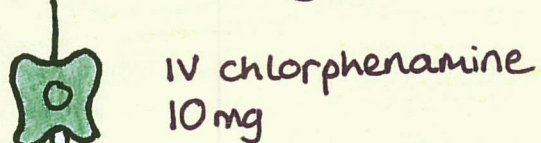 IV chlorphenamine
10mg